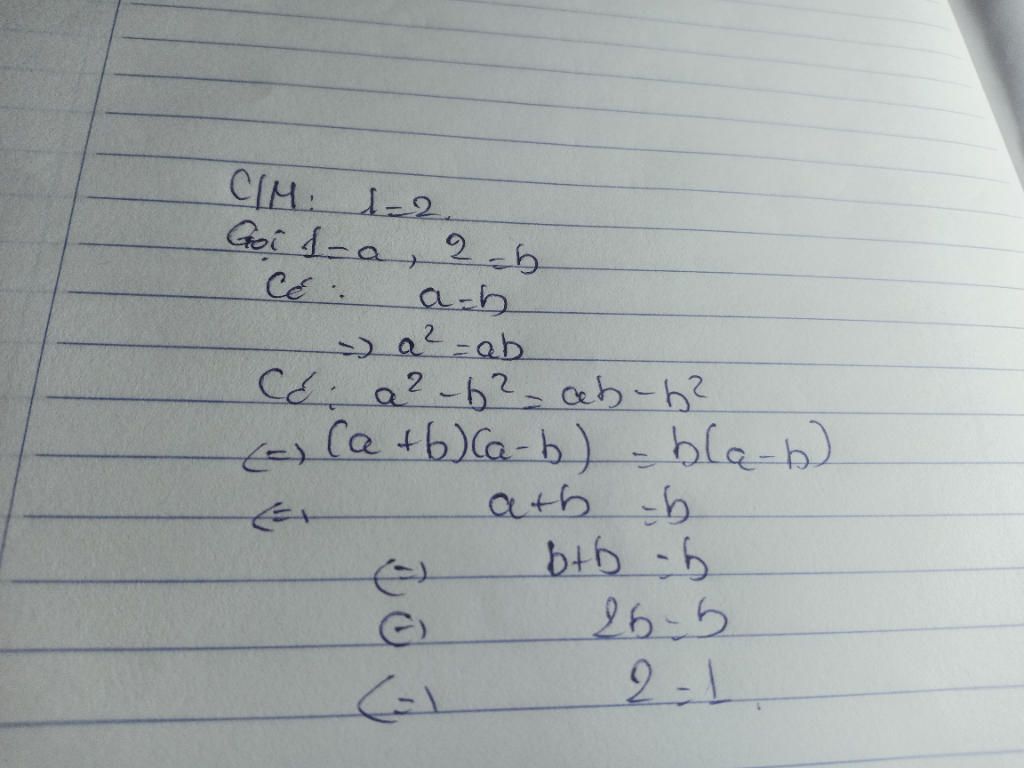 C/M: 1=2.
Gọi 1=a, 2=b
Có: a=b
=> a² = ab
Có: a² - b² = ab - b²
<=> (a+b)(a-b) = b(a-b)
<=> a+b = b
<=> b+b = b
<=> 2b = b
<=> 2 = 1.